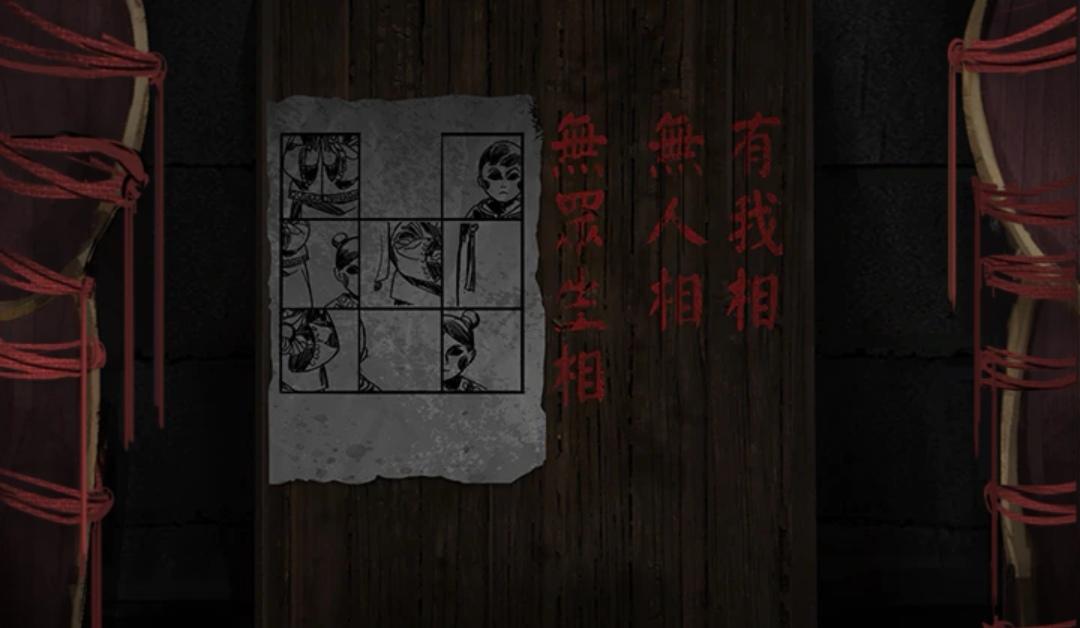 有我相
無人相
無眾生相